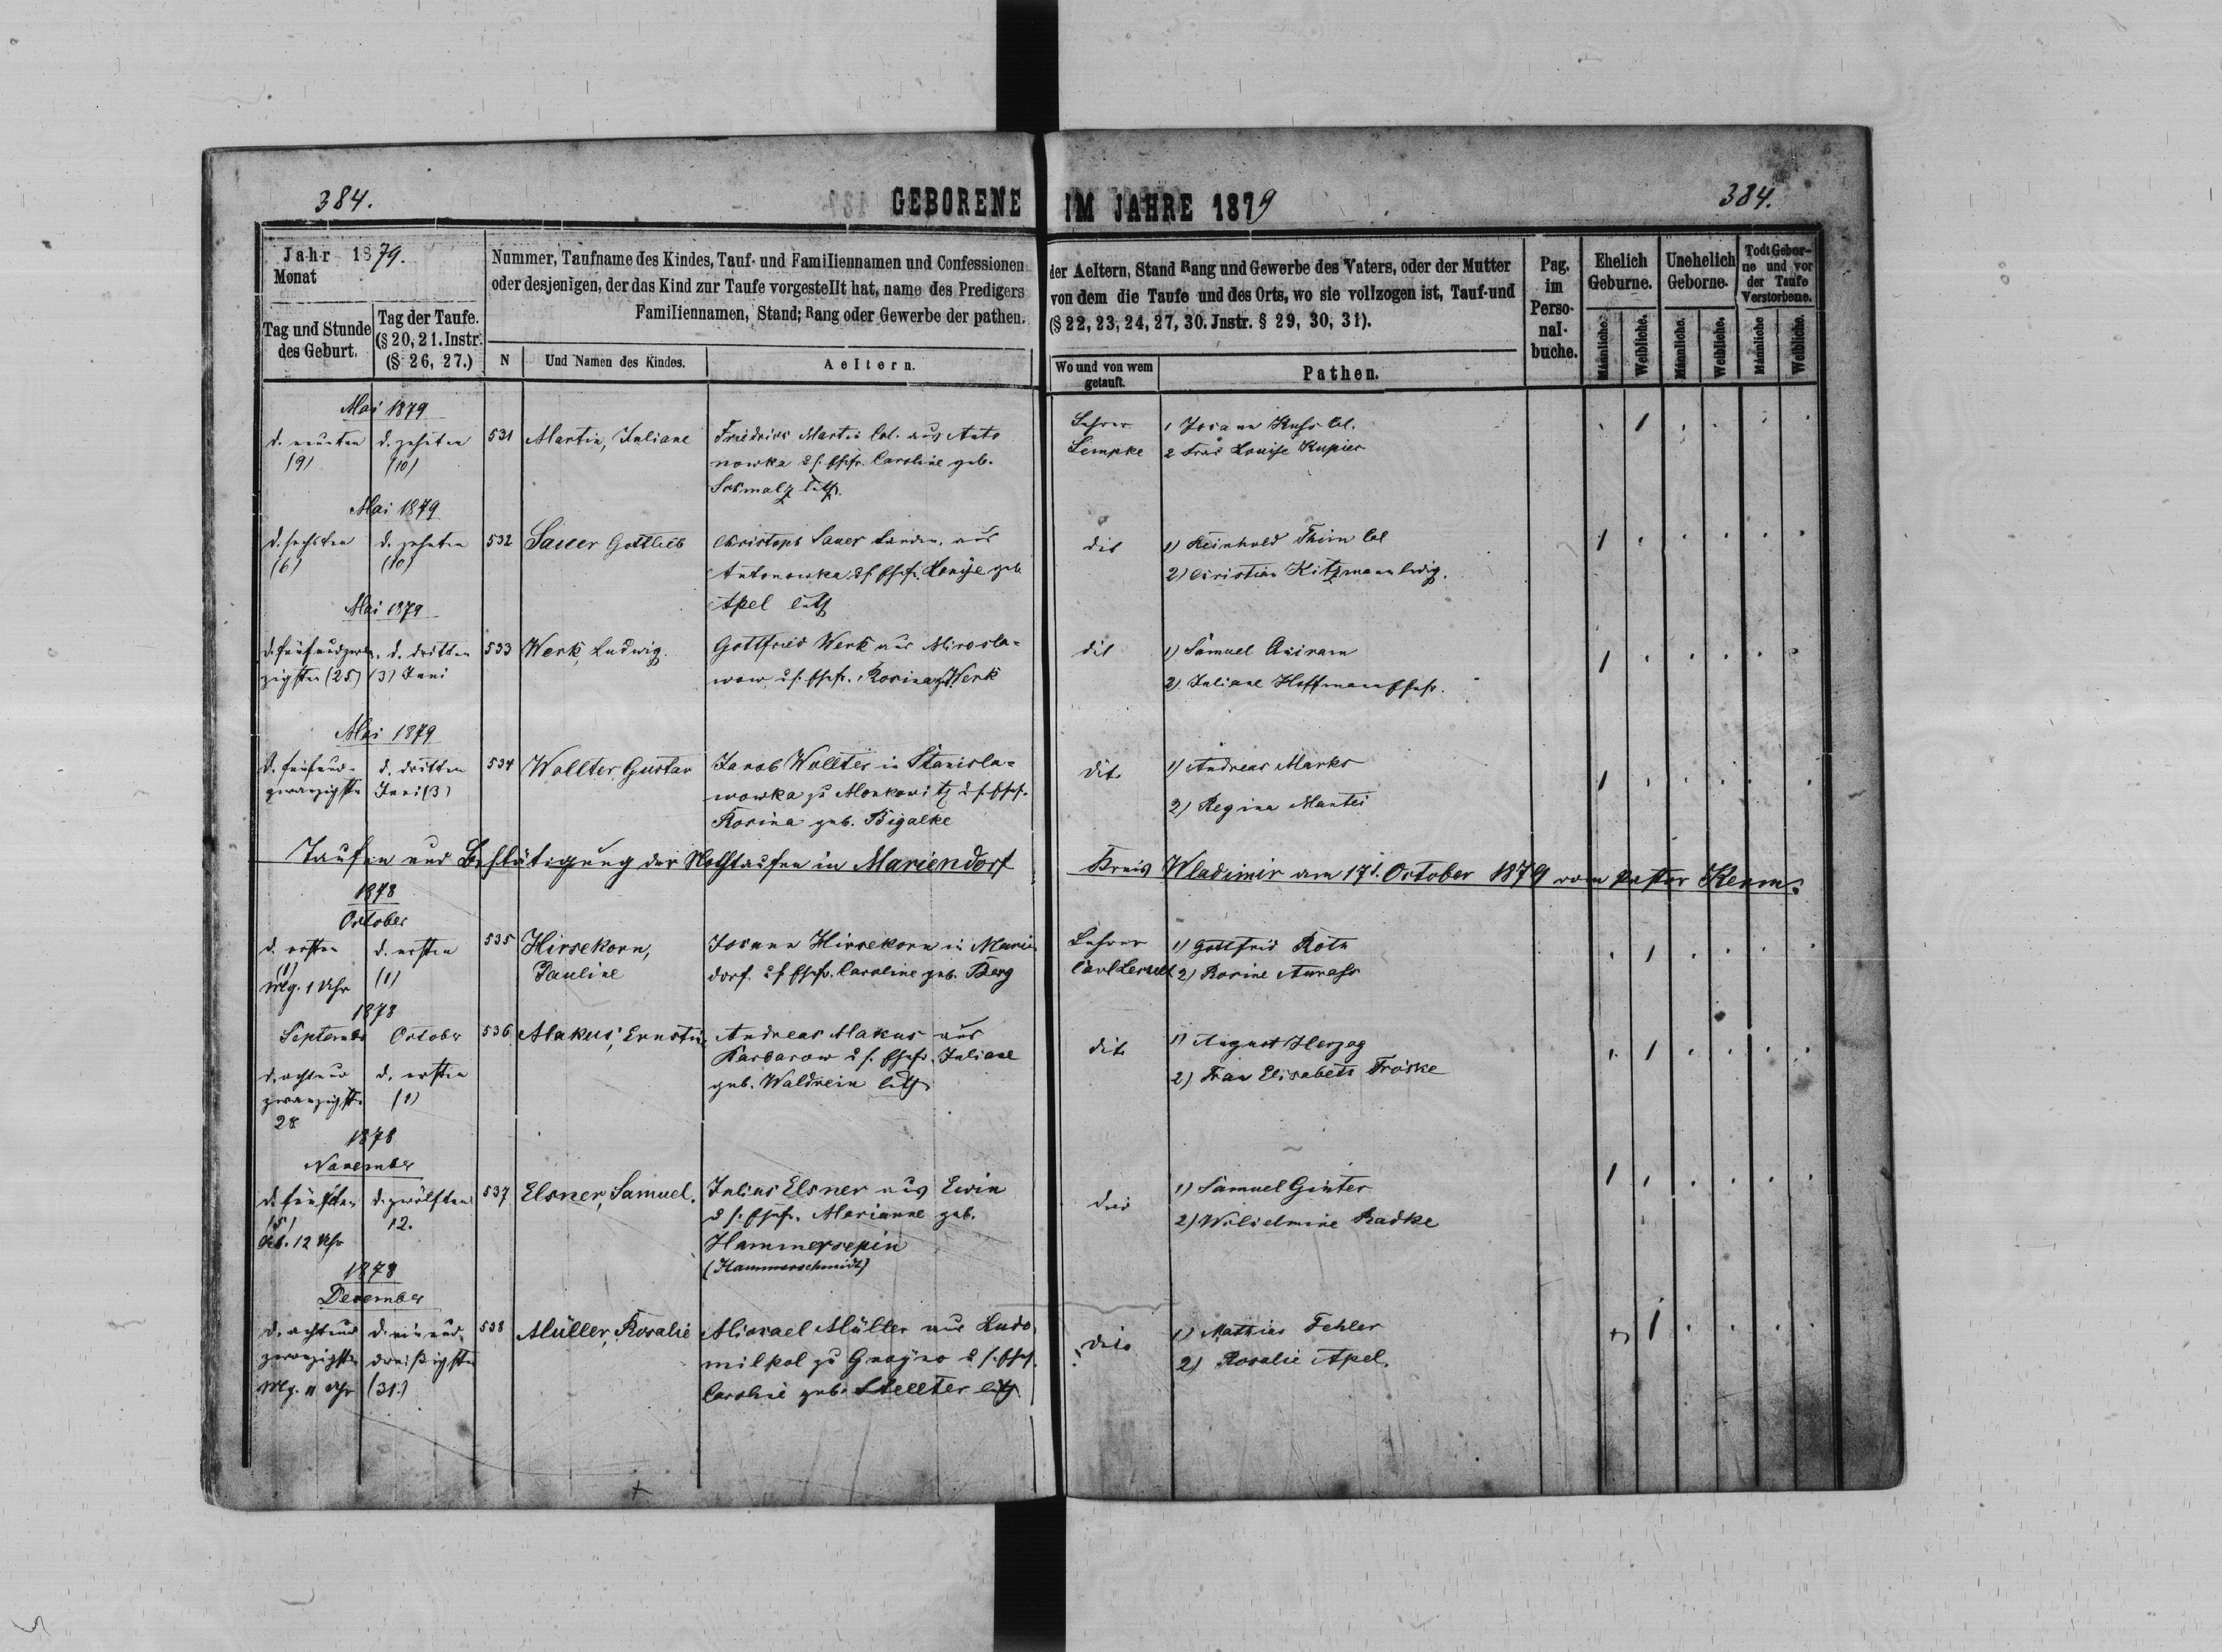 384.
GEBORENE IM JAHRE 1879
384.
Jahr 1879.
Monat
Tag und Stunde
des Geburt.
Tag der Taufe.
(§ 20, 21. Instr.
(§ 26, 27.)
Nummer, Taufname des Kindes, Tauf- und Familiennamen und Confessionen
oder desjenigen, der das Kind zur Taufe vorgestellt hat, name des Predigers
Familiennamen, Stand; Rang oder Gewerbe der pathen.
N
Und Namen des Kindes.
Aeltern.
der Aeltern, Stand Rang und Gewerbe des Vaters, oder der Mutter
von dem die Taufe und des Orts, wo sie vollzogen ist, Tauf-und
(§ 22, 23, 24, 27, 30. Jnstr. § 29, 30, 31).
Wo und von wem
getauft.
Pathen.
Pag.
im
Perso-
nal-
buche.
Ehelich
Geburne.
Unehelich
Geborne.
Todt Gebor-
ne und vor
der Taufe
Verstorbene.
Männliche.
Weibliche.
Männliche.
Weibliche.
Männliche
Weibliche.
Mai 1879
d. neunten
(9)
d. zehnten
(10)
531
Martin, Juliane
Friedrich Martin Col. aus Anto
nowka u s. Ehefr. Caroline geb.
Schmalz luth.
Lehrer
Lempke
1 Johann Kuss Col.
2 Frau Louise Kupier
1
Mai 1879
d. sechsten
(6)
d. zehnten
(10)
532
Sauer Gottlieb
Christoph Sauer aus
Antonowka u s. Ehefr. Louise geb
Apel luth
dit
1) Reinhold Thim Col
2) Christian Kitzmann ledig.
1
Mai 1879
d. fünfundzwan
zigsten (25)
d. dritten
(3) Juni
533
Werk, Ludwig.
Gottfried Werk aus Mirosla-
wow u s. Ehefr. Rosina g. Werk
dit
1) Samuel
2) Juliane Hoffmann Ehefr.
1
Mai 1879
d. fünfund-
zwanzigsten
d. dritten
Juni (3)
534
Wollter, Gustav
Jacob Wollter in Stanisla-
wowka zu Monkowitz u s. Ehef.
Rosina geb. Bigalke
dito
1) Andreas Marks
2) Regina Mantei
1
Taufen und Bestätigung der Nothtaufen in Mariendorf
Kreis Wladimir am 17. October 1879 vom Pastor Kerm.
1878
October
d. ersten
(1)
Mg. 1 Uhr
d. ersten
(1)
535
Hirsekorn,
Pauline
Johann Hirsekorn in Marien
dorf. u s Ehefr. Caroline geb. Berg
Lehrer
Carl
1) Gottfried Roth
2) Rosine
1
1878
September
d. achtund
zwanzigst.
28
October
d. ersten
(1)
536
Makus, Ernstine
Andreas Makus aus
Barbarow u s. Ehefr. Juliane
geb. Waldrein luth.
dito
1) August Herzog
2) Frau Elisabeth Fröske
1
1878
November
d. fünften
(5)
12 Uhr
d. zwölften
12.
537
Elsner, Samuel.
Julius Elsner aus Ewin
u s. Ehefr. Marianne geb.
Hammersepin
(Hammerschmidt)
dito
1) Samuel Ginter
2) Wilhelmine Radke
1
1878
December
d. achtund
zwanzigsten
Mg. 11 Uhr
d. einund
dreißigsten
(31.)
538
Müller, Rosalie
Michael Müller aus Ludo
milpol zu Gnojno u s. Ehef.
Caroline geb. Stellter luth.
dito
1) Mathias Fehler
2) Rosalie Apel.
1